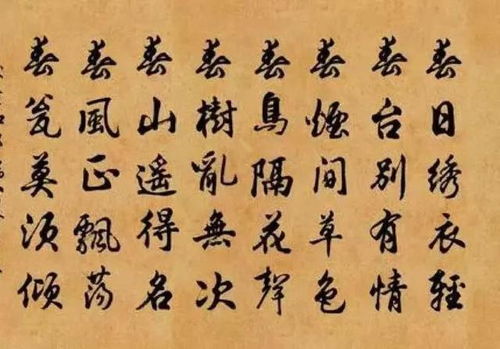 春日繡衣輕
春台別有情
春煙間草色
春鳥隔花聲
春樹亂無次
春山遙得名
春風正飄蕩
春瓮莫須傾